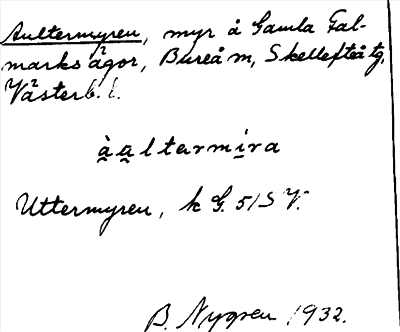 Aultermyren, myr å Gamla Fal-
marks ägor, Bureå m, Skellefteå tg,
Västerb. l.
àaltarmira
Uttermyren, k G. 51 S V.
B. Nygren 1932.